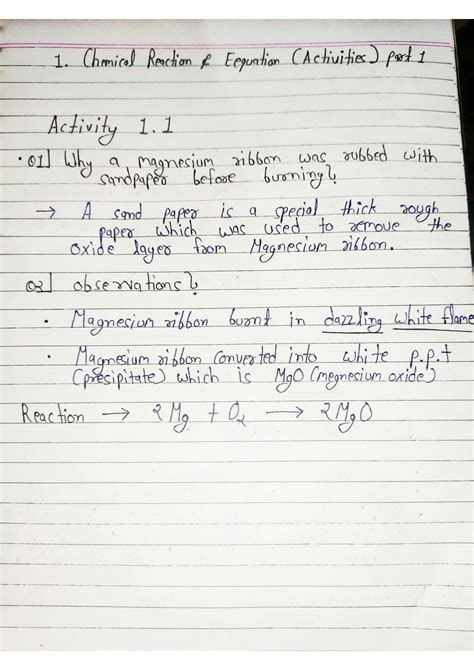 1. Chemical Reaction & Eequation (Activities) part 1
Activity 1.1
• Q1] Why a magnesium ribbon was rubbed with
sandpaper before burning?
→ A sand paper is a special thick rough
paper which was used to remove the
oxide layer from Magnesium ribbon.
Q2] observations?
• Magnesium ribbon burnt in dazzling white flame
• Magnesium ribbon converted into white p.p.t
(presipitate) which is MgO (megnesium oxide)
Reaction → 2Mg + O₂ → 2MgO